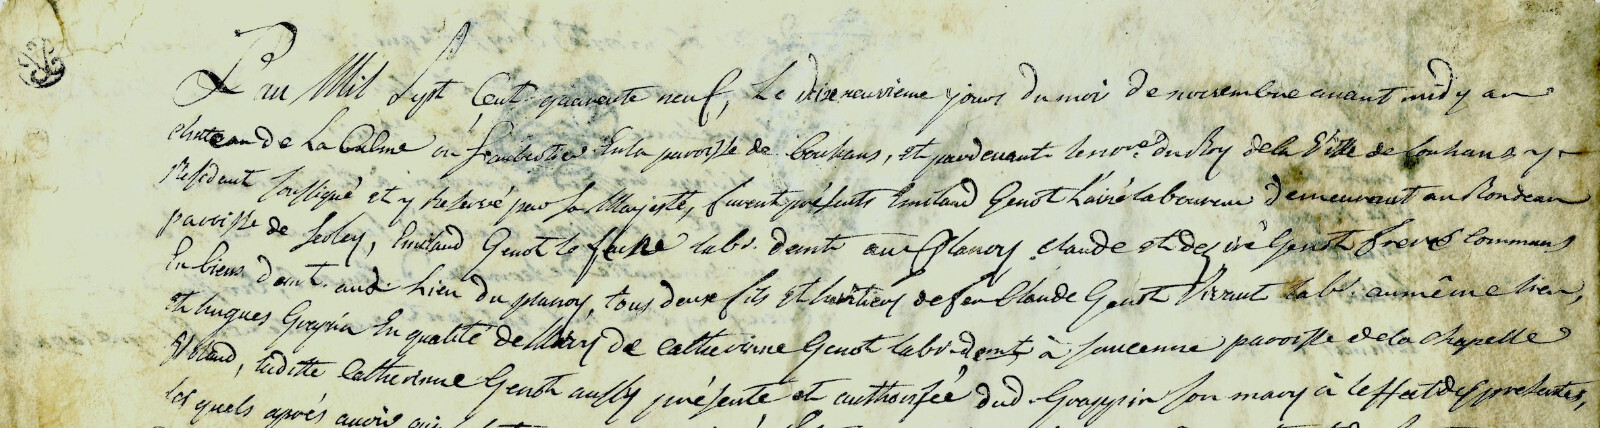 L'an Mil Sept Cent quarente neuf, Le dixneuvieme jour du moi de novembre avant midy au
chateau de La Balme en Enla paroisse de bouhans, et pardevant lenore. du Roy de la Ville de Louhans y
Residant soussigné et y reservé par sa Majesté, furent présents Emiland Genot L'ainé laboureur demeurant au Rondeau
paroisse de Serley, Emiland Genot le jeune labr. demt. au planoy claude et deziré Genot freres communs
En biens demt. aud. Lieu du planoy, tous deux fils et heritiers de feu Claude Genot Vivant labr. aumême lieu,
et hugues Grappin En qualité de Mary de catherinne Genot labr. demt. à paroisse de la chapelle
ladite Catherinne Genot aussy présente et authorisée dud. Grappin son mary à leffet des presentes,
les quels aprés avoir